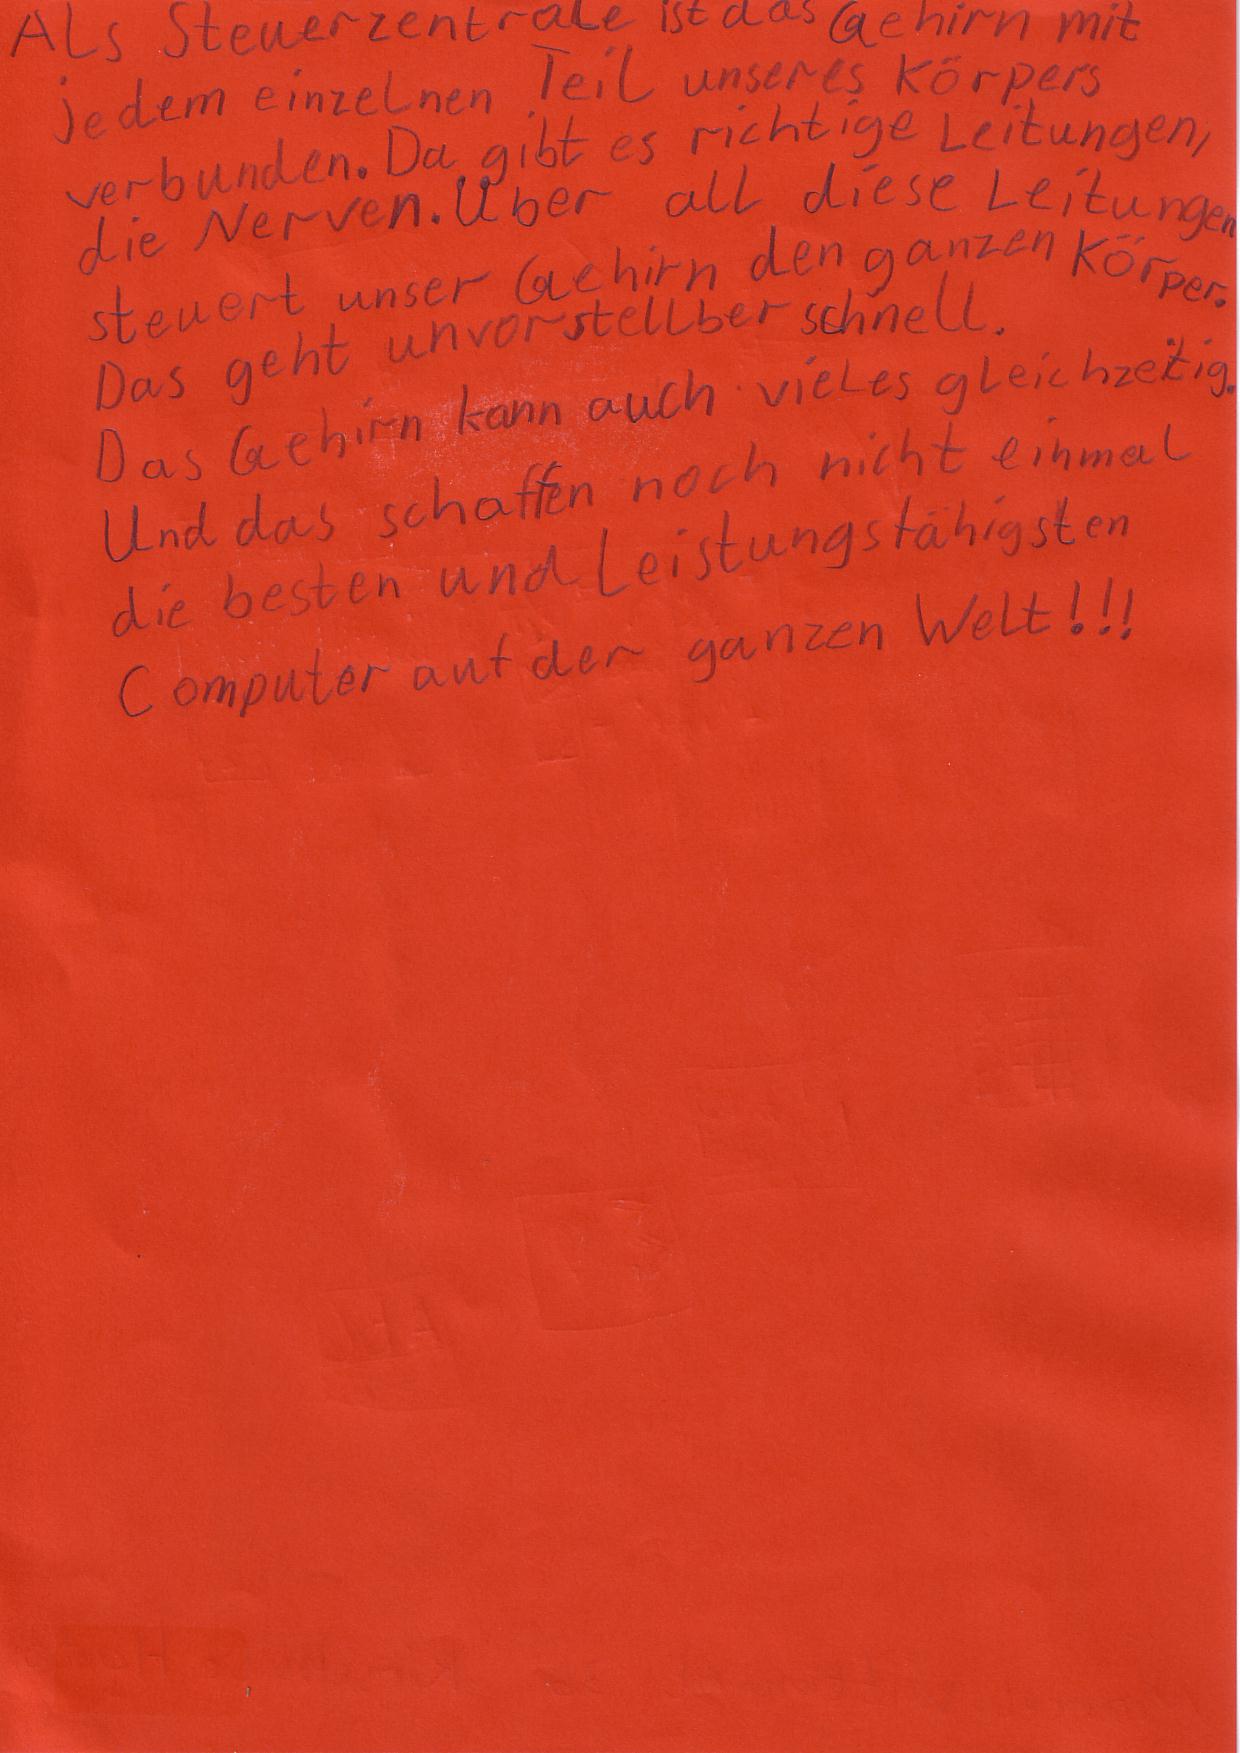 Als Steuerzentrale ist das Gehirn mit
jedem einzelnen Teil unseres Körpers
verbunden. Da gibt es richtige Leitungen,
die Nerven. Über all diese Leitungen
steuert unser Gehirn den ganzen Körper.
Das geht unvorstellber schnell.
Das Gehirn kann auch vieles gleichzeitig.
Und das schaffen noch nicht einmal
die besten und Leistungsfähigsten
Computer auf der ganzen Welt!!!